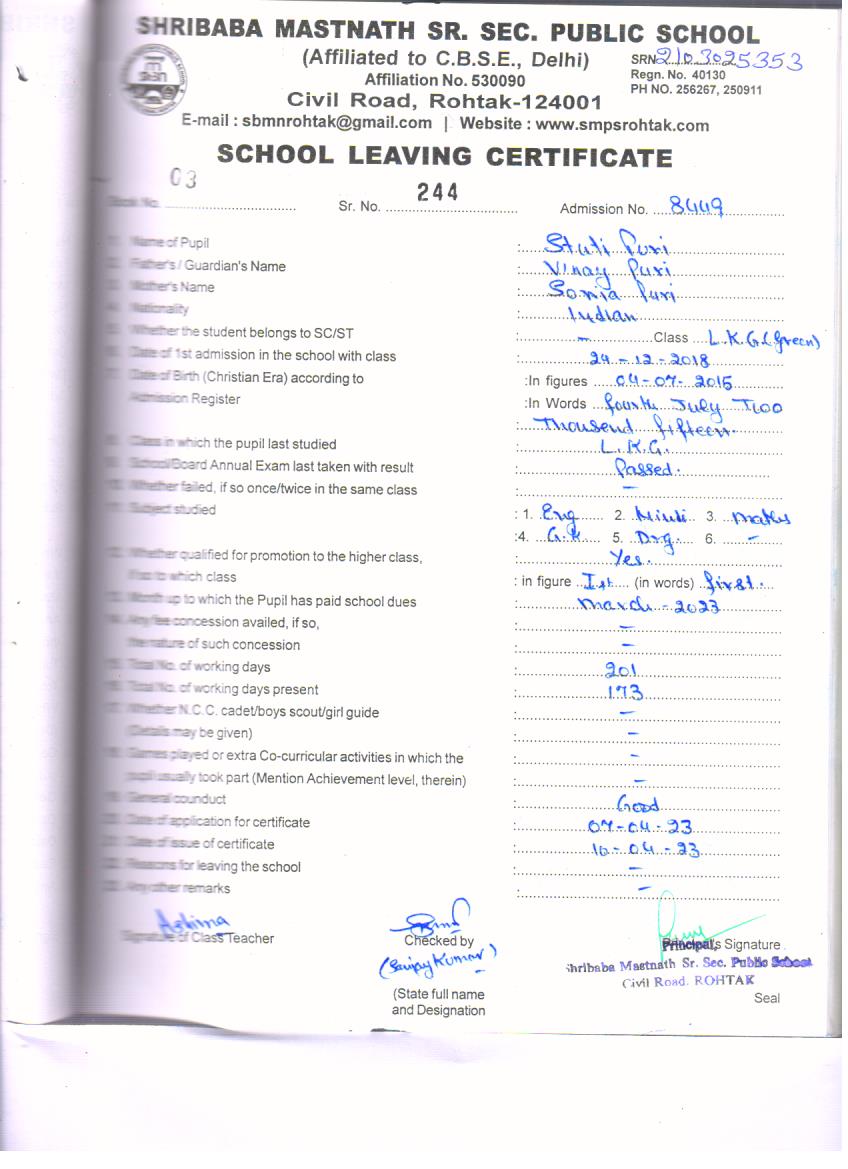 SHRIBABA MASTNATH SR. SEC. PUBLIC SCHOOL
(Affiliated to C.B.S.E., Delhi)
SRN 2103025353
Affiliation No. 530090
Regn. No. 40130
Civil Road, Rohtak-124001
PH NO. 256267, 250911
E-mail : sbmnrohtak@gmail.com | Website : www.smpsrohtak.com
SCHOOL LEAVING CERTIFICATE
Book No. 03 Sr. No. 244 Admission No. 8449
1. Name of Pupil : Stuti Puri
2. Father's / Guardian's Name : Vinay Puri
3. Mother's Name : Sonia Puri
4. Nationality : Indian
5. Whether the student belongs to SC/ST : - Class L.K.G.(Green)
6. Date of 1st admission in the school with class : 24-12-2018
7. Date of Birth (Christian Era) according to :In figures 04-07-2015
Admission Register :In Words fourth July Two
: Thousand fifteen.
8. Class in which the pupil last studied : L.K.G.
9. School/Board Annual Exam last taken with result : Passed.
10. Whether failed, if so once/twice in the same class : -
11. Subject studied : 1. Eng 2. Hindi 3. maths
:4. G.K 5. Drg. 6. -
12. Whether qualified for promotion to the higher class, : Yes.
if so to which class : in figure Ist (in words) first.
13. Month up to which the Pupil has paid school dues : March - 2023
14. Any fee concession availed, if so, : -
the nature of such concession : -
15. Total No. of working days : 201
16. Total No. of working days present : 173
17. Whether N.C.C. cadet/boys scout/girl guide : -
(Details may be given) : -
18. Games played or extra Co-curricular activities in which the : -
pupil usually took part (Mention Achievement level, therein) : -
19. General counduct : Good
20. Date of application for certificate : 07-04-23
21. Date of issue of certificate : 10-04-23
22. Reasons for leaving the school : -
23. Any other remarks : -
Ashima
Signature of Class Teacher
Checked by
(Sanjay Kumar)
(State full name
and Designation
Principal's Signature
Shribaba Mastnath Sr. Sec. Public School
Civil Road. ROHTAK
Seal